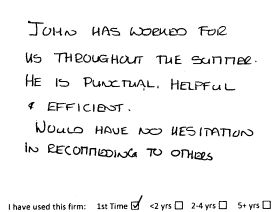 JOHN HAS WORKED FOR
US THROUGHOUT THE SUMMER.
HE IS PUNCTUAL, HELPFUL
& EFFICIENT.
WOULD HAVE NO HESITATION
IN RECOMMEDING TO OTHERS
I have used this firm: 1st Time ☑ <2 yrs ☐ 2-4 yrs ☐ 5+ yrs ☐